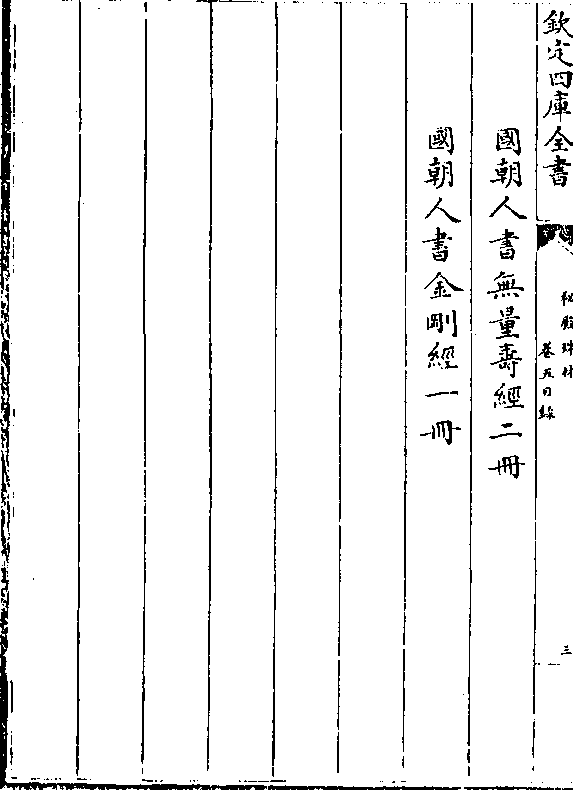 欽定四庫全書
秘殿珠林
卷五目錄
三
國朝人書無量壽經二冊
國朝人書金剛經一冊